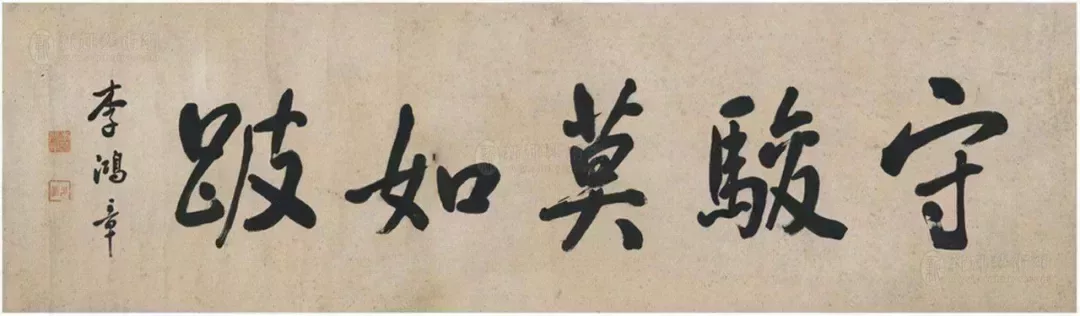 守駿莫如跛
李鴻章